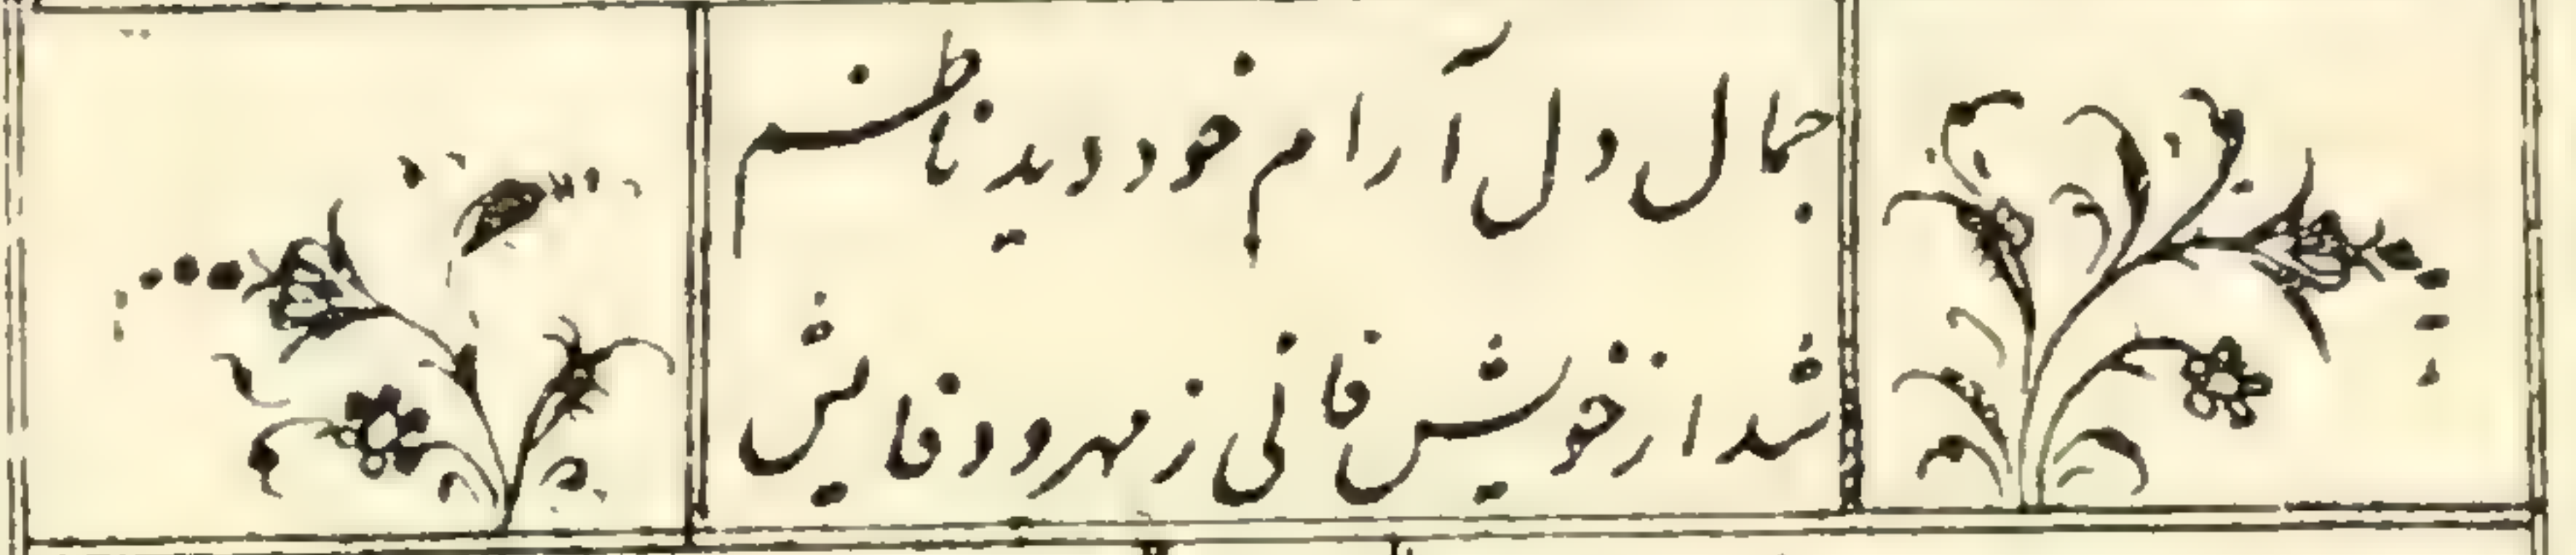 جمال دل آرام خود دید ناظم
شد از خویش فانی ز مهر و وفایش